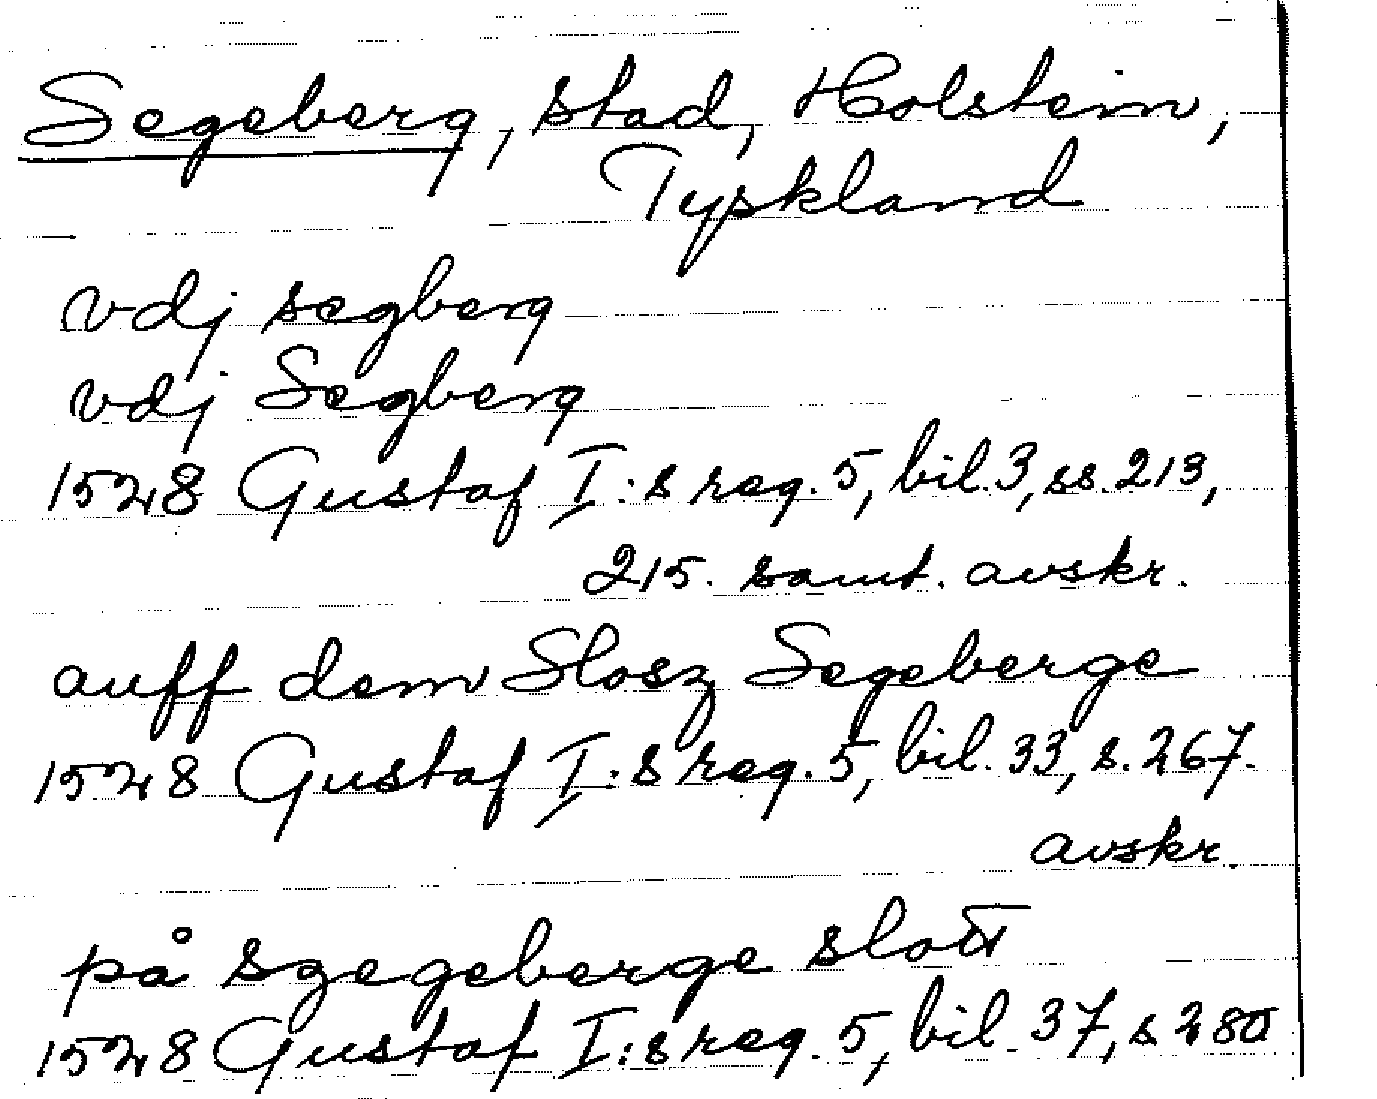 Segeberg, stad, Holstein,
Tyskland
vdj segberg
vdj Segberg
1528 Gustaf I:s reg. 5, bil. 3, ss. 213,
215. samt. avskr.
auff dem Slosz Segeberge
1528 Gustaf I:s reg. 5, bil. 33, s. 267.
avskr.
på szegeberge slott
1528 Gustaf I:s reg. 5, bil. 37, s. 280